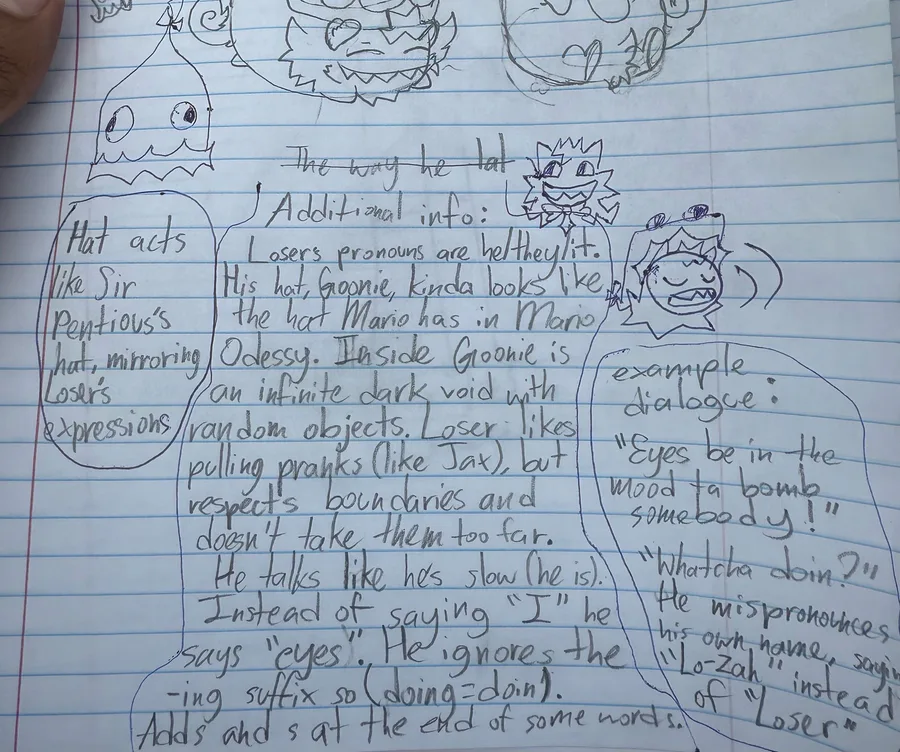 The way he lat
Additional info:
Losers pronouns are he/they/it.
His hat, Goonie, kinda looks like
the hat Mario has in Mario
Odessy. Inside Goonie is
an infinite dark void with
random objects. Loser likes
pulling pranks (like Jax), but
respects boundaries and
doesn't take them too far.
He talks like he's slow (he is).
Instead of saying "I" he
says "eyes". He ignores the
-ing suffix so (doing=doin).
Adds and s at the end of some words.
Hat acts
like Sir
Pentious's
hat, mirroring
Loser's
expressions
example
dialogue:
"Eyes be in the
mood ta bomb
somebody!"
"Whatcha doin?"
He mispronounces
his own name, sayin
"Lo-zah" instead
of "Loser"